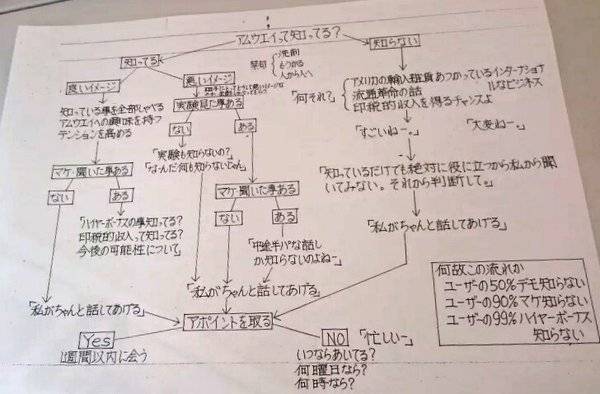 アムウエイって知ってる?
知ってる
知らない
禁句
洗剤
もうかる
人から人へ
良いイメージ
悪いイメージ
知っている事を全部しゃべる
アムウエイへの興味を持つ
テンションを高める
実験見た事ある
ない
ある
「何それ?」
アメリカの輸入雑貨あつかっているインターナショナ
ルなビジネス
流通革命の話
印税的収入を得るチャンスよ
「すごいねー。」
「大変ねー。」
「実験も知らないの?
なーんだ何も知らないじゃん」
「知っているだけでも絶対に役に立つから私から聞
いてみない。それから判断して。」
マケ・聞いた事ある
ない
ある
マケ・聞いた事ある
ない
ある
「ハイヤーボーナスの事知ってる?
印税的収入って知ってる?
今後の可能性について」
「中途半パな話し
か知らないのよねー」
「私がちゃんと話してあげる」
「私がちゃんと話してあげる」
「私がちゃんと話してあげる」
アポイントを取る
Yes
1週間以内に会う
NO
「忙しいー」
いつならあいてる?
何曜日なら?
何時なら?
何故この流れか
ユーザーの50%デモ知らない
ユーザーの90%マケ知らない
ユーザーの99%ハイヤーボーナス
知らない